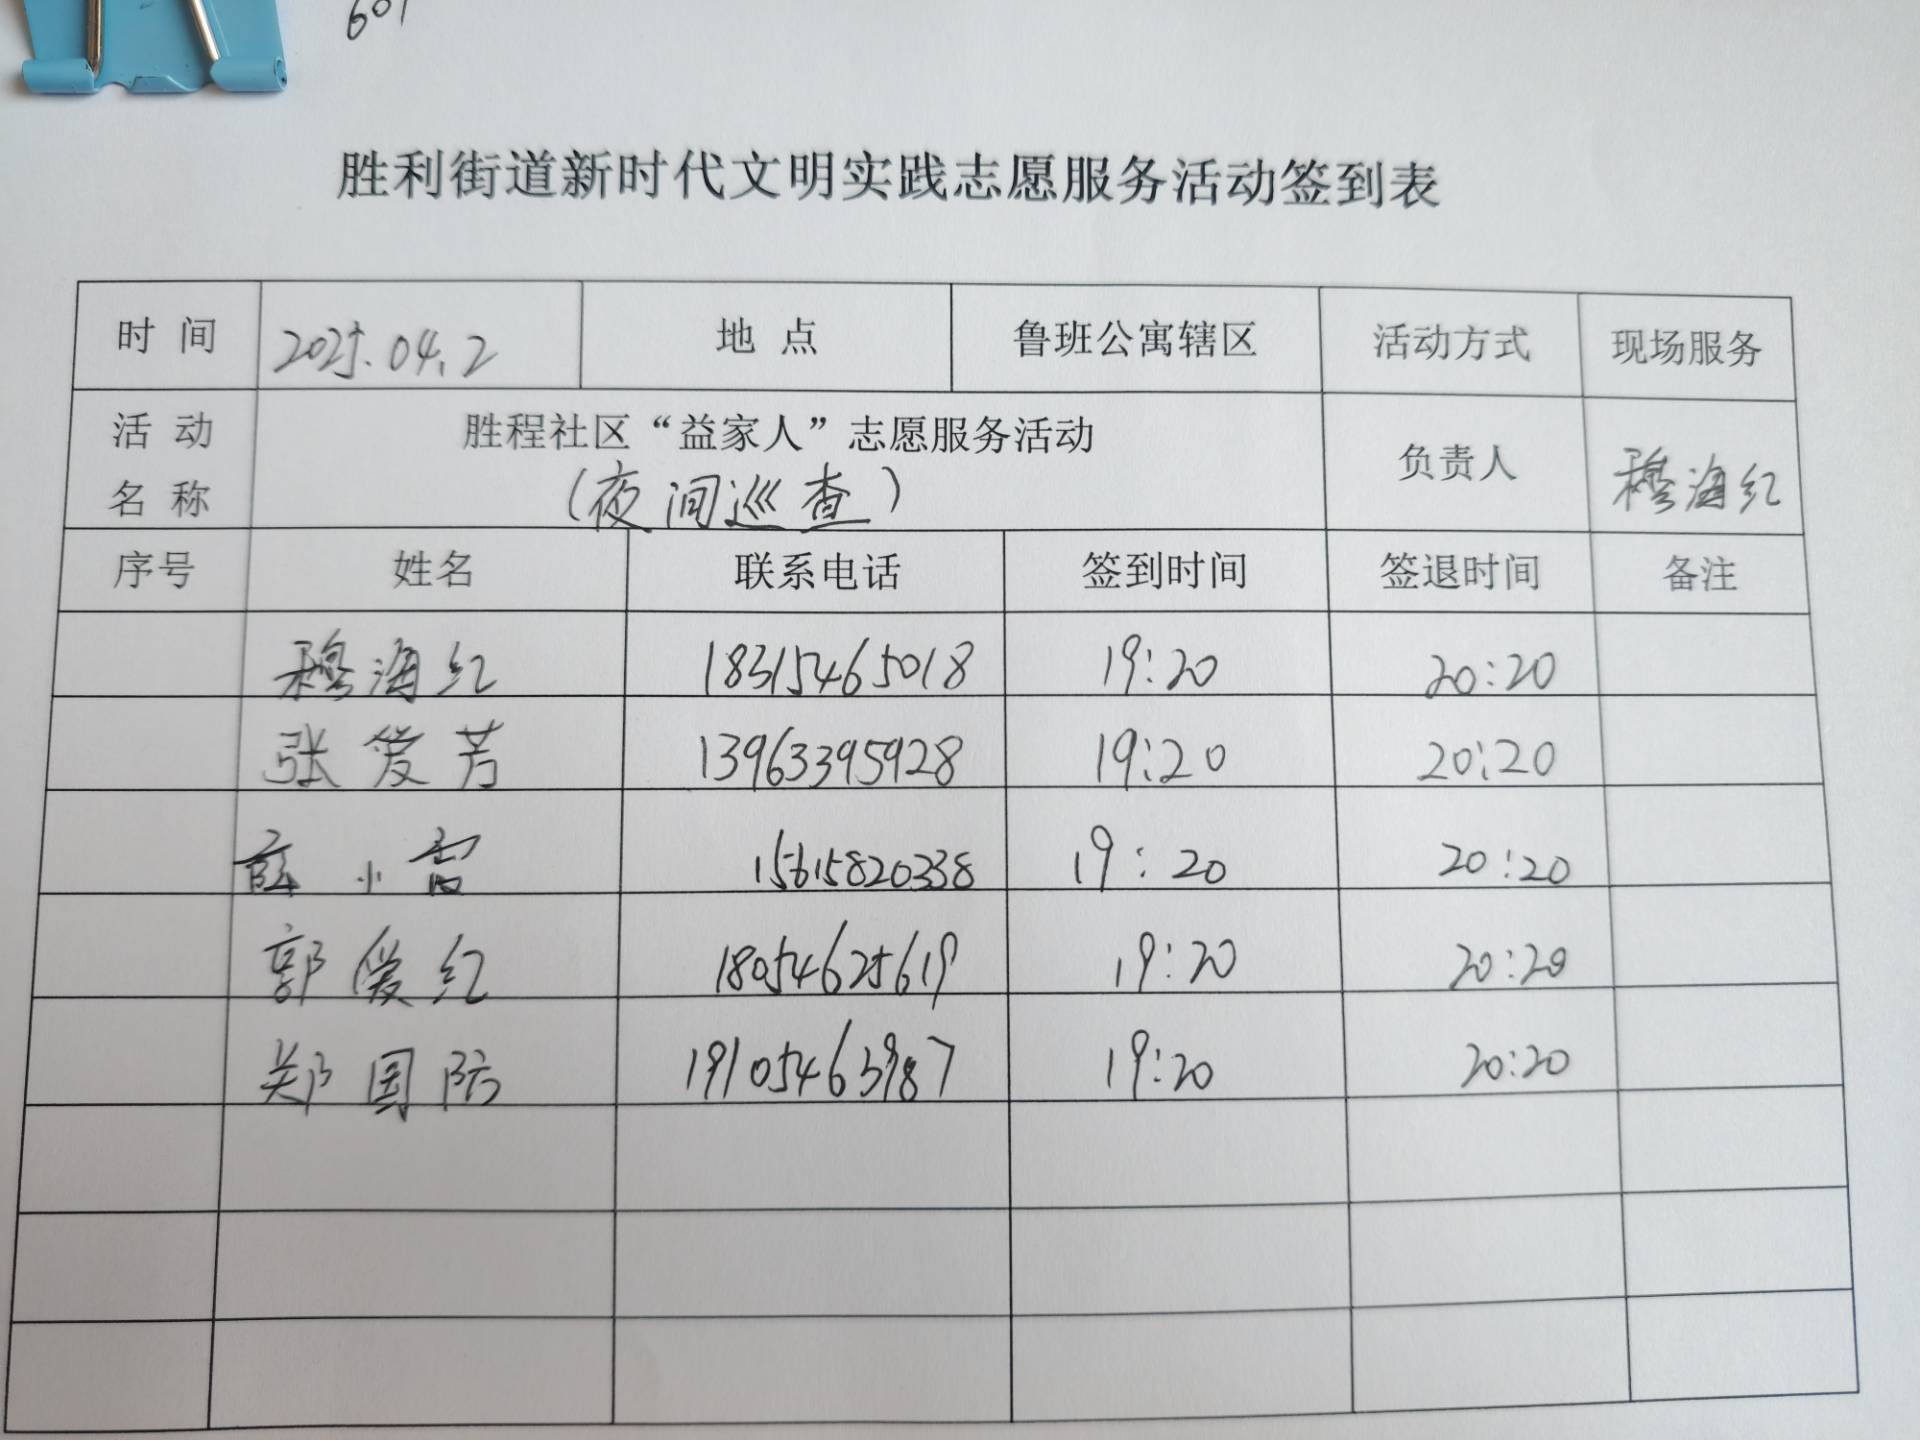 601
胜利街道新时代文明实践志愿服务活动签到表
时 间 2025.04.2 地 点 鲁班公寓辖区 活动方式 现场服务
活 动 名 称 胜程社区“益家人”志愿服务活动 (夜间巡查) 负责人 穆海红
序号 姓名 联系电话 签到时间 签退时间 备注
穆海红 18315465018 19:20 20:20
张爱芳 13963395928 19:20 20:20
薛小雪 15615820338 19:20 20:20
郭爱红 18054625619 19:20 20:20
郑国防 19105463987 19:20 20:20